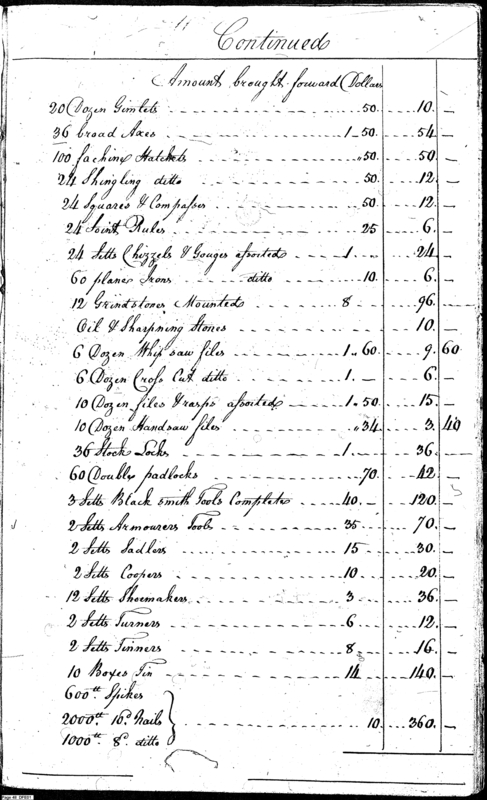 Continued
Amount brought forward Dollars
20 Dozen Gimlets 50 10. —
36 broad Axes 1 50 54 —
100 fachine Hatchets "50 50 —
24 Shingling ditto 50 12. —
24 Squares & Compasses 50 12 —
24 Joint Rules 25 6. —
24 Setts Chizzels & Gouges assorted 1 24. —
60 plane Irons ditto 10 6. —
12 Grindstones Mounted 8 96. —
Oil & Sharpning Stones 10. —
6 Dozen Whip saw files 1.. 60 9. 60
6 Dozen Cross Cut ditto 1. — 6. —
10 Dozen files & rasps assorted 1.. 50 15 —
10 Dozen Handsaw files "34 3. 40
36 Stock Locks 1 36. —
60 Double padlocks 70 42 —
3 Setts Black smith Tools Complete 40 — 120. —
2 Setts Armourers Tools 35 70. —
2 Setts Sadlers 15 30. —
2 Setts Coopers 10 20. —
12 Setts Shoemakers 3 36 —
2 Setts Turners 6 12. —
2 Setts Tinners 8 16. —
10 Boxes Tin 14 140. —
600tt Spikes
2000tt 16d Nails 10 360. —
1000tt 8d ditto